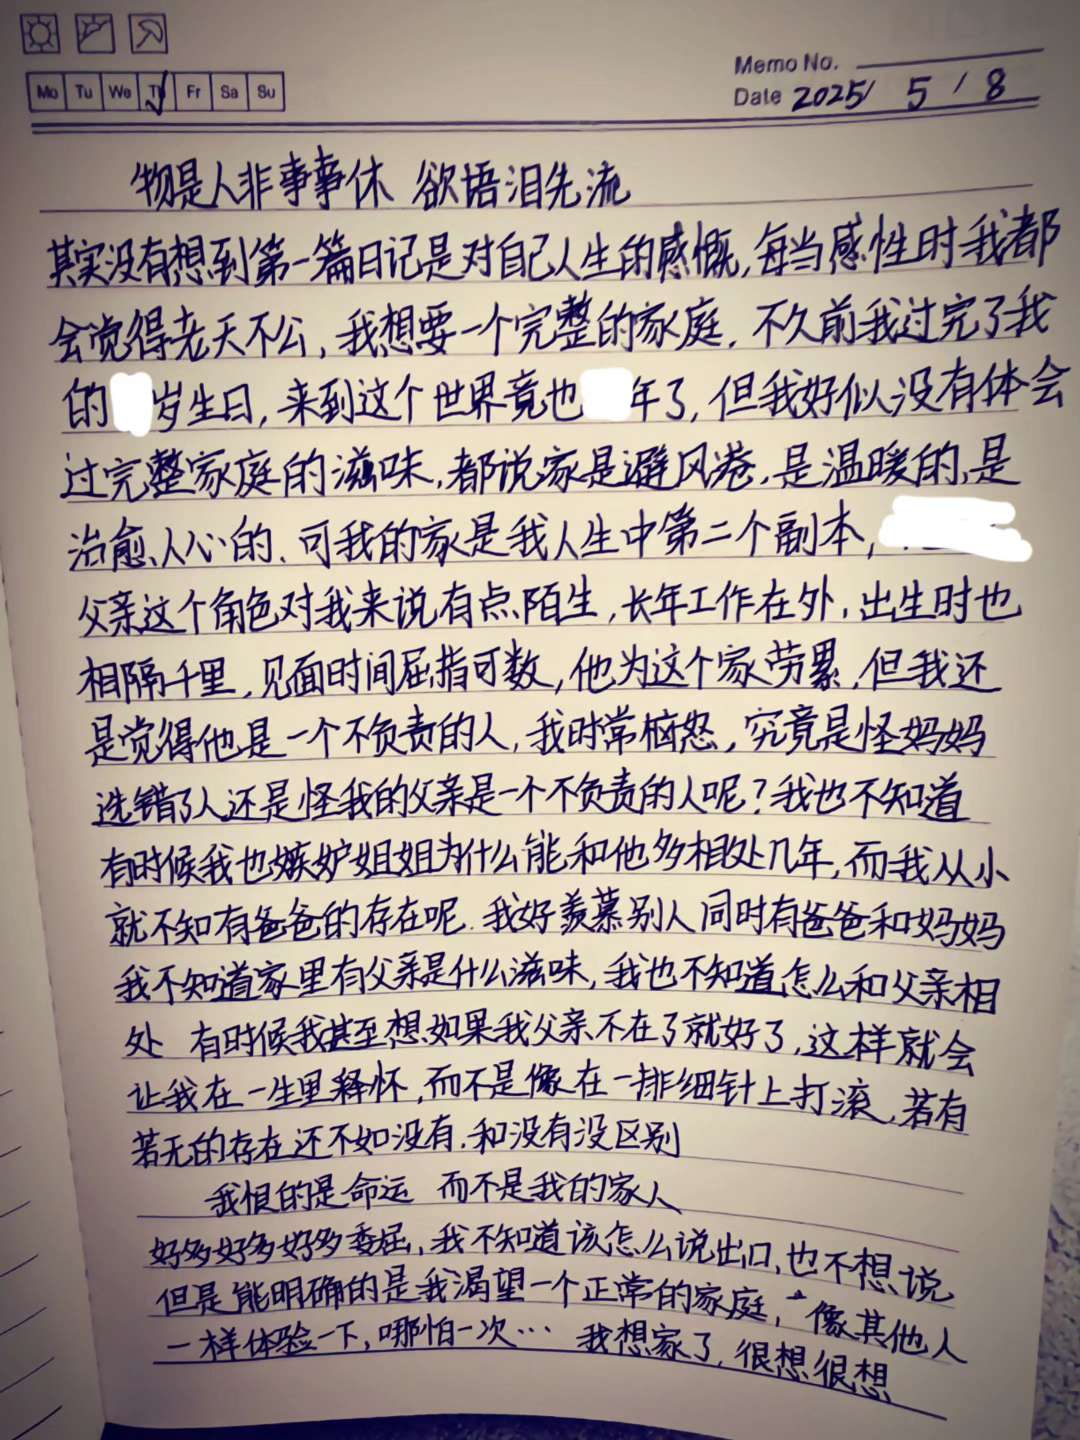 Mo Tu We Th Fr Sa Su
Memo No.
Date 2025/ 5 / 8
物是人非事事休 欲语泪先流
其实没有想到第一篇日记是对自己人生的感慨，每当感性时我都
会觉得老天不公，我想要一个完整的家庭．不久前我过完了我
的 岁生日，来到这个世界竟也 年了，但我好似没有体会
过完整家庭的滋味，都说家是避风港，是温暖的，是
治愈人心的．可我的家是我人生中第二个副本，
父亲这个角色对我来说有点陌生，长年工作在外，出生时也
相隔千里，见面时间屈指可数，他为这个家劳累，但我还
是觉得他是一个不负责的人，我时常恼怒，究竟是怪妈妈
选错了人还是怪我的父亲是一个不负责的人呢？我也不知道
有时候我也嫉妒姐姐为什么能和他多相处几年，而我从小
就不知有爸爸的存在呢．我好羡慕别人同时有爸爸和妈妈
我不知道家里有父亲是什么滋味，我也不知道怎么和父亲相
处 有时候我甚至想如果我父亲不在了就好了，这样就会
让我在一生里释怀，而不是像在一排细针上打滚，若有
若无的存在还不如没有．和没有没区别
我恨的是命运 而不是我的家人
好多好多好多委屈，我不知道该怎么说出口，也不想说
但是能明确的是我渴望一个正常的家庭，像其他人
一样体验一下，哪怕一次… 我想家了，很想很想